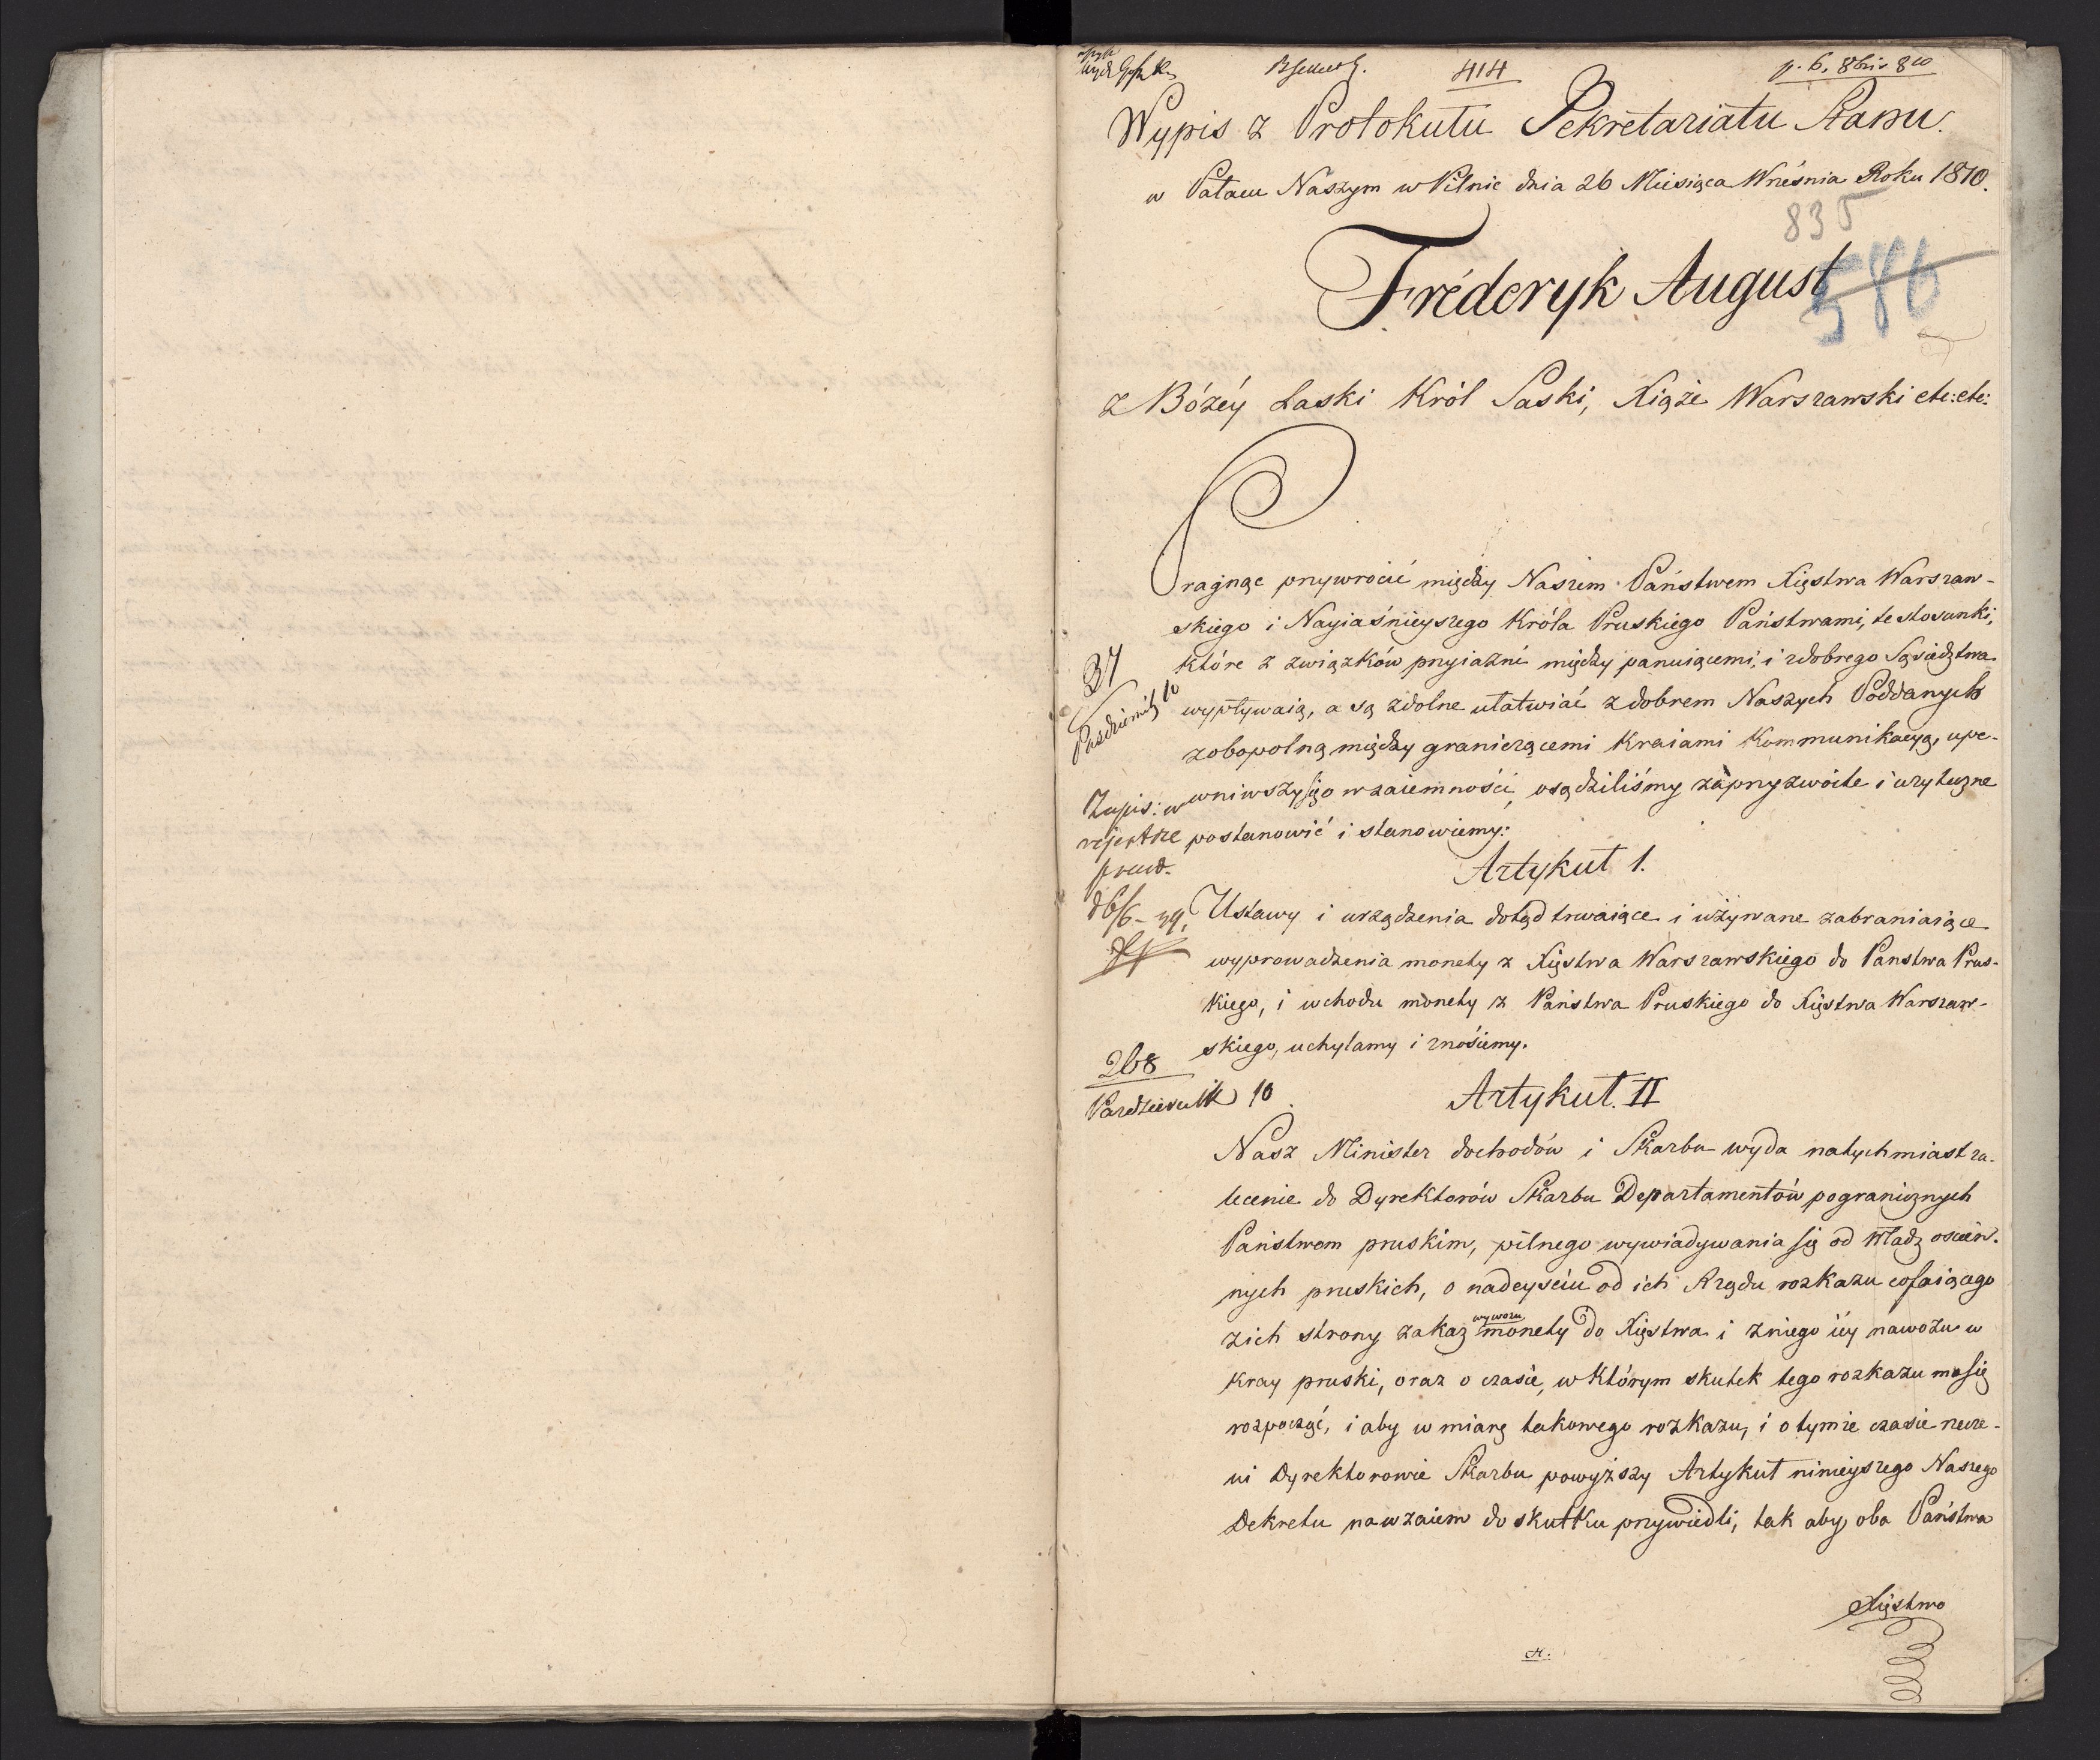 414
p. 6, 8bris 810
Wypis z Protokułu Sekretariatu Stanu.
w Pałacu Naszym w Pilnic dnia 26 Miesiąca Września Roku 1810.
835
586
Fréderyk August
z Bózéy Łaski Król Saski, Xiąże Warszawski etc: etc:
Pragnąc przywrocić między Naszem Państwem Xięstwa Warszaw-
skiego i Nayiaśnieyszego Króla Pruskiego Państwami, te stosunki,
które z związków przyiazni między panuiącemi, i zdobrego Sąsiedztwa
wypływaią, a są zdolne ułatwiać z dobrem Naszych Poddanych
zobopolną między graniczącemi Kraiami Kommunikacyą, upe-
wniwszy się o wzaiemności, osądziliśmy za przyzwoite i użyteczne
postanowić i stanowiemy:
37
Pazdziernik 10
Zapis: w
rejestrze
prawd.
Artykuł 1.
Ustawy i urządzenia dotąd trwaiące i używane zabraniaiące
wyprowadzenia monety z Xięstwa Warszawskiego do Panstwa Prus-
kiego, i wchodu monety z Państwa Pruskiego do Xięstwa Warszaw-
skiego, uchylamy i znósiemy.
268
Pazdziernik 10
Artykuł. II
Nasz Minister dochodów i Skarbu wyda natychmiast za-
lecenie do Dyrektorów Skarbu Departamentów pogranicznych
Państwom pruskim, pilnego wywiadywania się od Władz oscien-
nych pruskich, o nadeysciu od ich Rządu rozkazu cofaiącego
zich strony zakaz wywozu monety do Xięstwa i zniego iey nawozu w
kray pruski, oraz o czasie, w którym skutek tego rozkazu ma się
rozpocząć, i aby w miarę takowego rozkazu, i o tymże czasie rzecze-
ni Dyrektorowie Skarbu powyższy Artykuł ninieyszego Naszego
Dekretu nawzaiem do skutku przywiedli, tak aby oba Państwa
Xięstwo